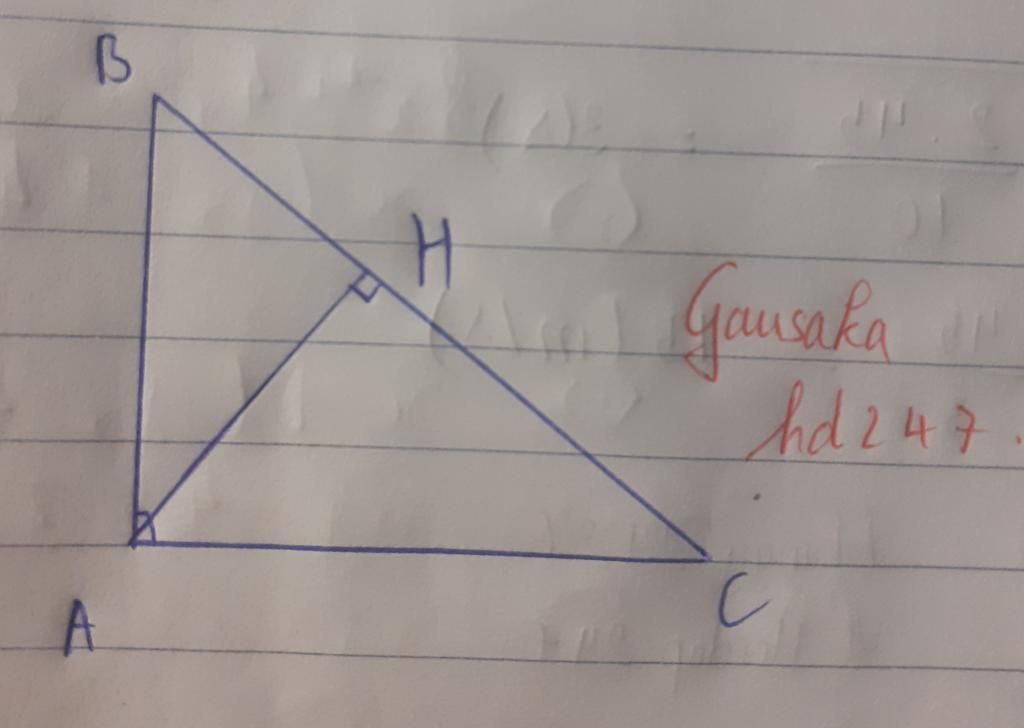 B
H
Gausaka
hd247.
A
C